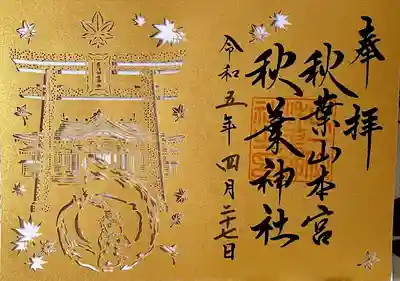 奉拝
秋葉山本宮
秋葉神社
令和五年 四月二十七日